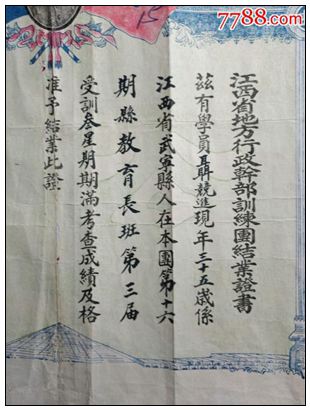 7788.com
15
江西省地方行政幹部訓練團結業證書
茲有學員聶競進現年三十五歲係
江西省武寧縣人在本團第十六
期縣教育長班第三届
受訓叁星期期滿考查成績及格
准予結業此證